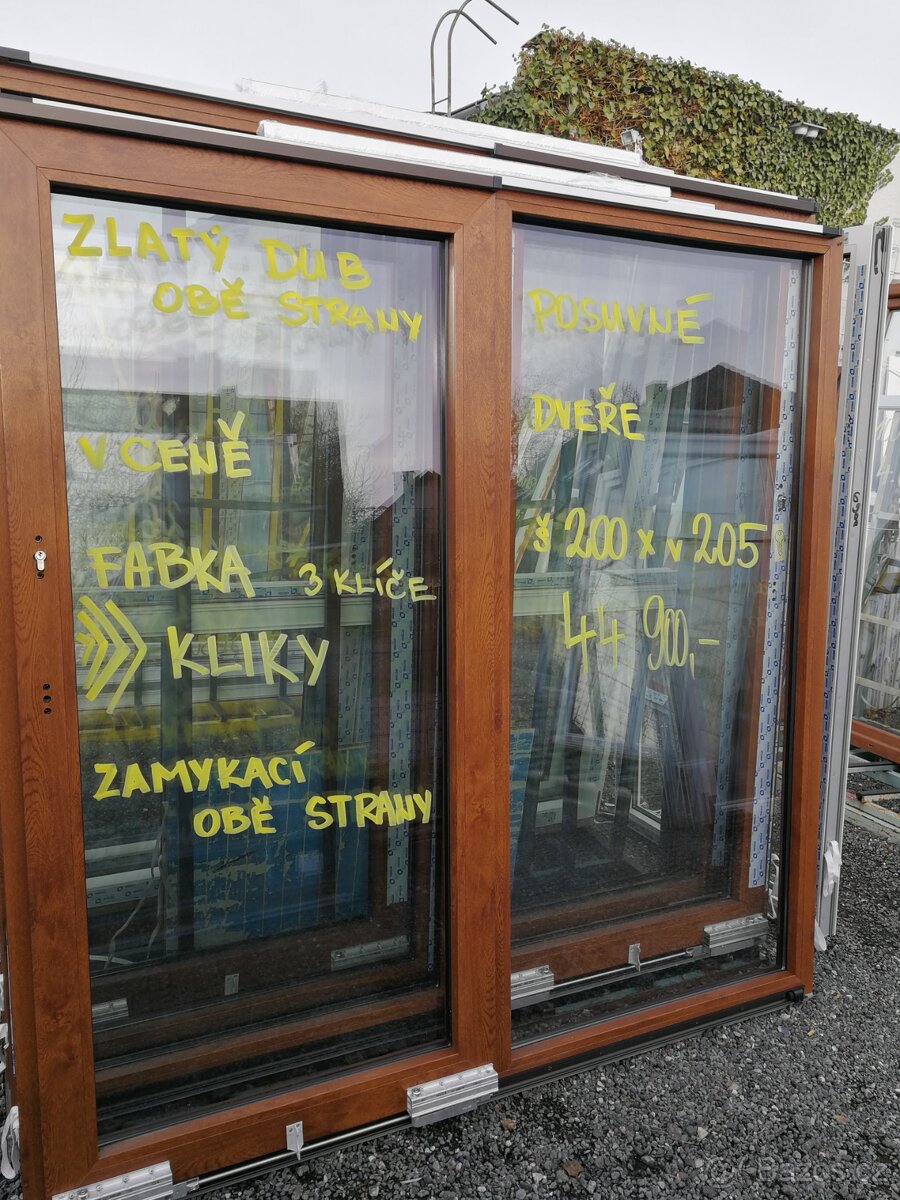 ZLATÝ DUB
OBĚ STRANY
V CENĚ
FABKA 3 KLÍČE
KLIKY
ZAMYKACÍ
OBĚ STRANY
POSUVNÉ
DVEŘE
š 200 x v 205
44 900,-
Bazos.cz